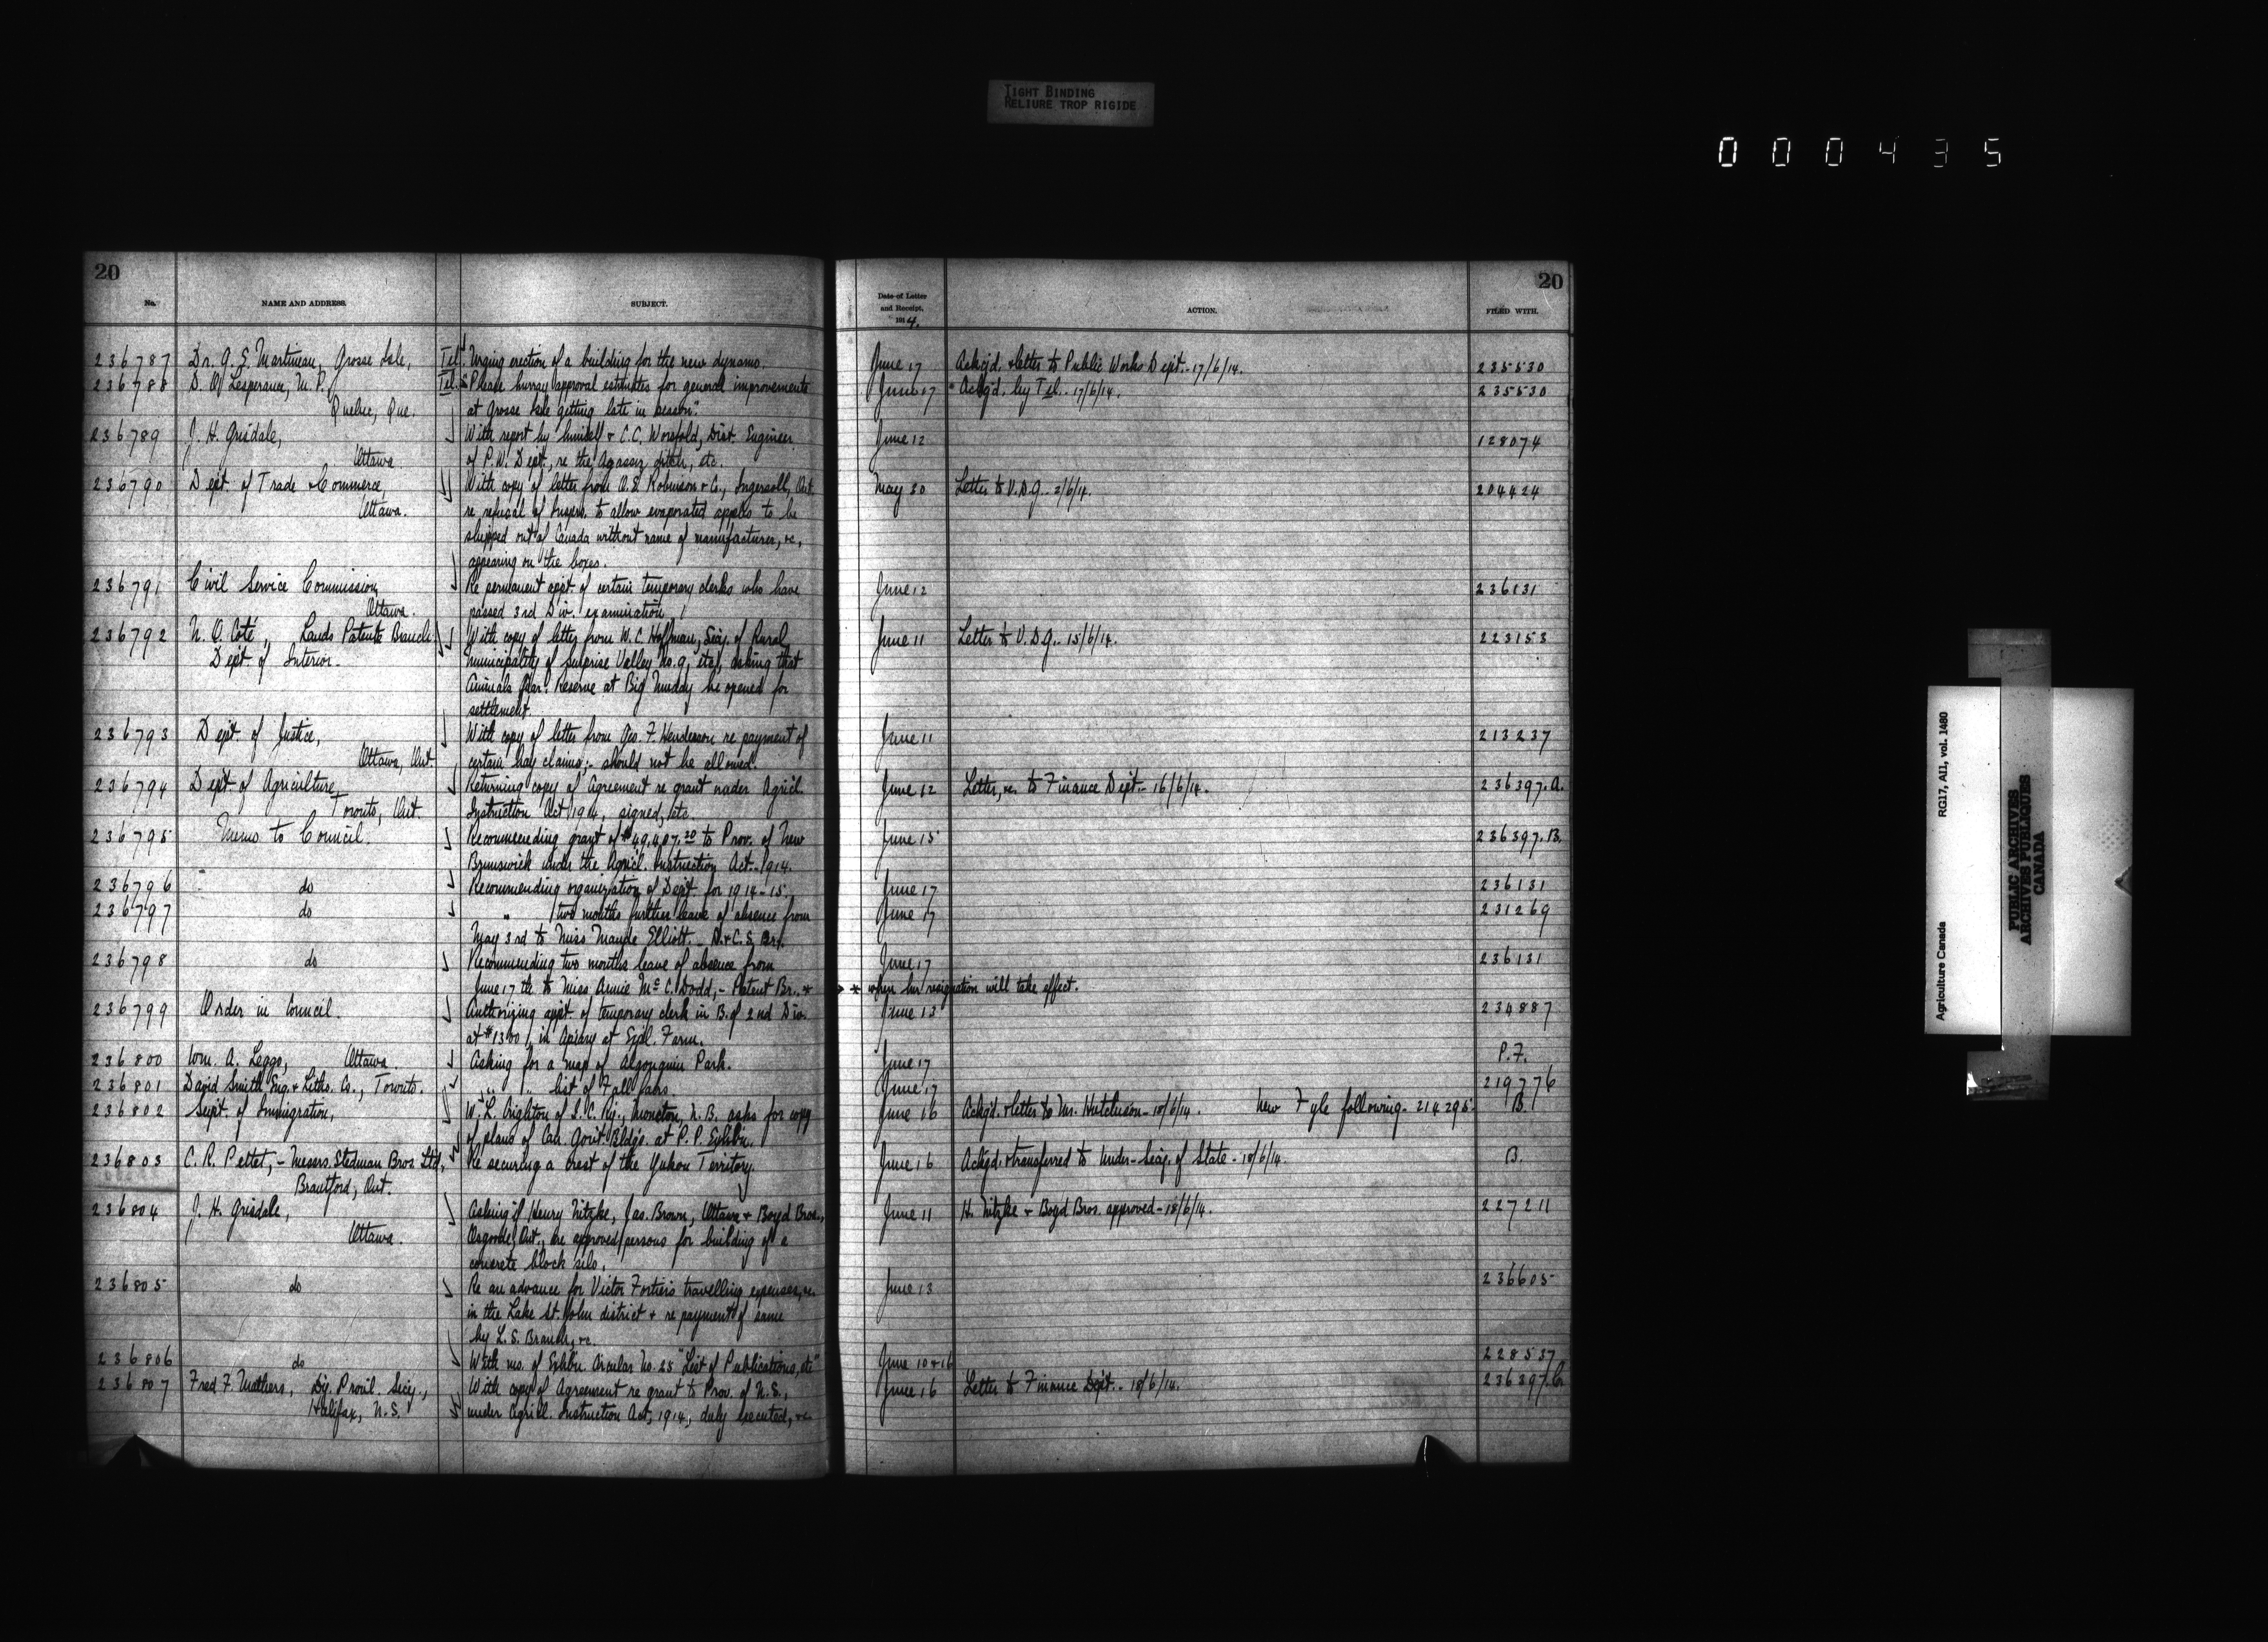 TIGHT BINDING
RELIURE TROP RIGIDE
000435
20
No. NAME AND ADDRESS. SUBJECT.
236787 Dr. G. E. Martineau, Grosse Isle, Tel. Urging erection of a building for the new dynamo.
236788 D. O. Lesperance, M.P., Tel. "Please hurray approval estimates for general improvements
Quebec, Que. at Grosse Isle getting late in season".
236789 J. H. Grisdale, With report by himself & C.C. Worsfold, Dist. Engineer
Ottawa. of P.W. Dept., re the Agassiz ditch, etc.
236790 Dept. of Trade & Commerce, With copy of letter from O.E. Robinson & Co., Ingersoll, Ont.
Ottawa. re refusal of Insprs. to allow evaporated apples to be
shipped out of Canada without name of manufacturer, &c.,
appearing on the boxes.
236791 Civil Service Commission, Re permanent appt. of certain temporary clerks who have
Ottawa. passed 3rd Div. examination
236792 N. O. Coté, Lands Patents Branch With copy of letter from W.C. Hoffman, Secy. of Rural
Dept. of Interior. municipality of Surprise Valley No. 9, etc., asking that
Animals Quar. Reserve at Big Muddy be opened for
settlement.
236793 Dept of Justice, With copy of letter from Geo. F. Henderson re payment of
Ottawa, Ont. certain hay claims;- should not be allowed.
236794 Dept of Agriculture, Returning copy of Agreement re grant under Agricl.
Toronto, Ont. Instruction Act 1914, signed, etc.
236795 Memo to Council. Recommending grant of $49,407.20 to Prov. of New
Brunswick under the Agricl. Instruction Act. 1914.
236796 do Recommending organization of Dept. for 1914-15.
236797 do " two months further leave of absence from
May 3rd to Miss Maude Elliott. - D. & C. S. Br.
236798 do Recommending two months leave of absence from
June 17th to Miss Annie McC. Dodd,- Patent Br. *
236799 Order in Council. Authorizing appt. of temporary clerk in B. of 2nd Div.
at $1300, in Apiary at Expl. Farm.
236800 Wm. A. Leggo, Ottawa. Asking for a map of Algonquin Park.
236801 David Smith Eng. & Litho. Co., Toronto. " " list of Fall fairs.
236802 Supt of Immigration, W. L. Crighton of I.C. Ry., Moncton, N.B. asks for copy
of plans of Can. Govt. Bldgs. at P.P. Exhbn.
236803 C. R. Pettet, - Messrs. Stedman Bros. Ltd., Re securing a crest of the Yukon Territory.
Brantford, Ont.
236804 J. H. Grisdale, Asking if Henry Nitzke, Jas. Brown, Ottawa & Boyd Bros.,
Ottawa. Osgoode, Ont., are approved persons for building of a
concrete block silo.
236805 do Re an advance for Victor Fortier's travelling expenses, &c.
in the Lake St. John district & re payment of same
by L. S. Branch, &c.
236806 do With ms. of Exhbn. Circular No. 25 "List of Publications, etc"
236807 Fred F. Mathers, Dy. Provl. Secy., With copy of Agreement re grant to Prov. of N.S.,
Halifax, N.S. under Agricl. Instruction Act, 1914, duly executed, &c.
20
Date of Letter and Receipt, 1914. ACTION. FILED WITH.
June 17 Ackgd. & letter to Public Works Dept. - 17/6/14. 235530
June 17 Ackgd. by Tel. - 17/6/14. 235530
June 12 128074
May 30 Letter to V.D.G. - 2/6/14. 204424
June 12 236131
June 11 Letter to V.D.G. - 15/6/14. 223153
June 11 213237
June 12 Letter, &c. to Finance Dept. - 16/6/14. 236397.A.
June 15 236397.B.
June 17 236131
June 17 231269
June 17 236131
* when her resignation will take effect.
June 13 234887
June 17 P.F.
June 17 219776
June 16 Ackgd. & letter to Mr. Hutchison - 18/6/14. New Fyle following - 214295. B.
June 16 Ackgd. & transferred to Under-Secy. of State - 18/6/14. B.
June 11 H. Nitzke & Boyd Bros. approved - 18/6/14. 227211
June 13 236605
June 10 & 16 228537
June 16 Letter to Finance Dept. - 18/6/14. 236397.C.
Agriculture Canada RG17, AI1, vol. 1480
PUBLIC ARCHIVES
ARCHIVES PUBLIQUES
CANADA